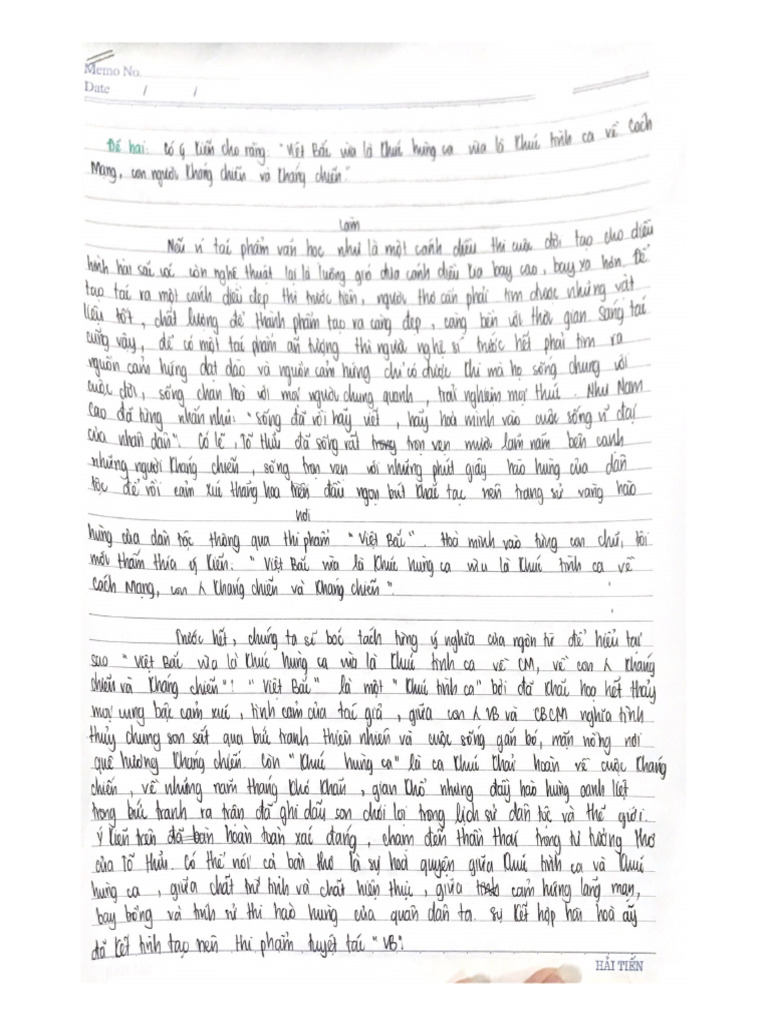 Memo No.
Date / /
Đề hai: Có ý kiến cho rằng: "Việt Bắc vừa là khúc hùng ca vừa là khúc tình ca về Cách
Mạng, con người kháng chiến và kháng chiến".
Làm
Nếu ví tác phẩm văn học như là một cánh diều thì cuộc đời tạo cho diều
hình hài sắc vóc còn nghệ thuật lại là luồng gió đưa cánh diều kia bay cao, bay xa hơn. Để
tạo tác ra một cánh diều đẹp thì trước tiên, người thợ cần phải tìm được những vật
liệu tốt, chất lượng để thành phẩm tạo ra càng đẹp, càng bền với thời gian. Sáng tác
cũng vậy, để có một tác phẩm ấn tượng thì người nghệ sĩ trước hết phải tìm ra
nguồn cảm hứng dạt dào và nguồn cảm hứng chỉ có được khi mà họ sống chung với
cuộc đời, sống chan hoà với mọi người chung quanh, trải nghiệm mọi thứ. Như Nam
Cao đã từng nhắn nhủ: "Sống đã rồi hãy viết, hãy hoà mình vào cuộc sống vĩ đại
của nhân dân". Có lẽ, Tố Hữu đã sống rất trọn vẹn mười lăm năm bên cạnh
những người kháng chiến, sống trọn vẹn với những phút giây hào hùng của dân
tộc để rồi cảm xúc thăng hoa trên đầu ngọn bút khắc tạc nên trang sử vàng hào
nơi
hùng của dân tộc thông qua thi phẩm "Việt Bắc". Hoà mình vào từng con chữ, tôi
mới thấm thía ý kiến: "Việt Bắc vừa là khúc hùng ca vừa là khúc tình ca về
Cách Mạng, con người kháng chiến và kháng chiến".
Trước hết, chúng ta sẽ bóc tách từng ý nghĩa của ngôn từ để hiểu tại
sao "Việt Bắc vừa là khúc hùng ca vừa là khúc tình ca về CM, về con người kháng
chiến và kháng chiến"! "Việt Bắc" là một "khúc tình ca" bởi đã khắc hoạ hết thảy
mọi cung bậc cảm xúc, tình cảm của tác giả, giữa con người VB và CBCM nghĩa tình
thủy chung son sắt qua bức tranh thiên nhiên và cuộc sống gắn bó, mặn nồng nơi
quê hương kháng chiến. Còn "khúc hùng ca" là ca khúc khải hoàn về cuộc kháng
chiến, về những năm tháng khó khăn, gian khổ nhưng đầy hào hùng oanh liệt
trong bức tranh ra trận đã ghi dấu son chói lọi trong lịch sử dân tộc và thế giới.
Ý kiến trên hoàn toàn xác đáng, chạm đến thần thái trong tư tưởng thơ
của Tố Hữu. Có thể nói cả bài thơ là sự hoà quyện giữa khúc tình ca và khúc
hùng ca, giữa chất trữ tình và chất hiện thực, giữa cảm hứng lãng mạn,
bay bổng và tính sử thi hào hùng của quân dân ta. Sự kết hợp hài hoà ấy
đã kết tinh tạo nên thi phẩm tuyệt tác "VB".
HẢI TIẾN